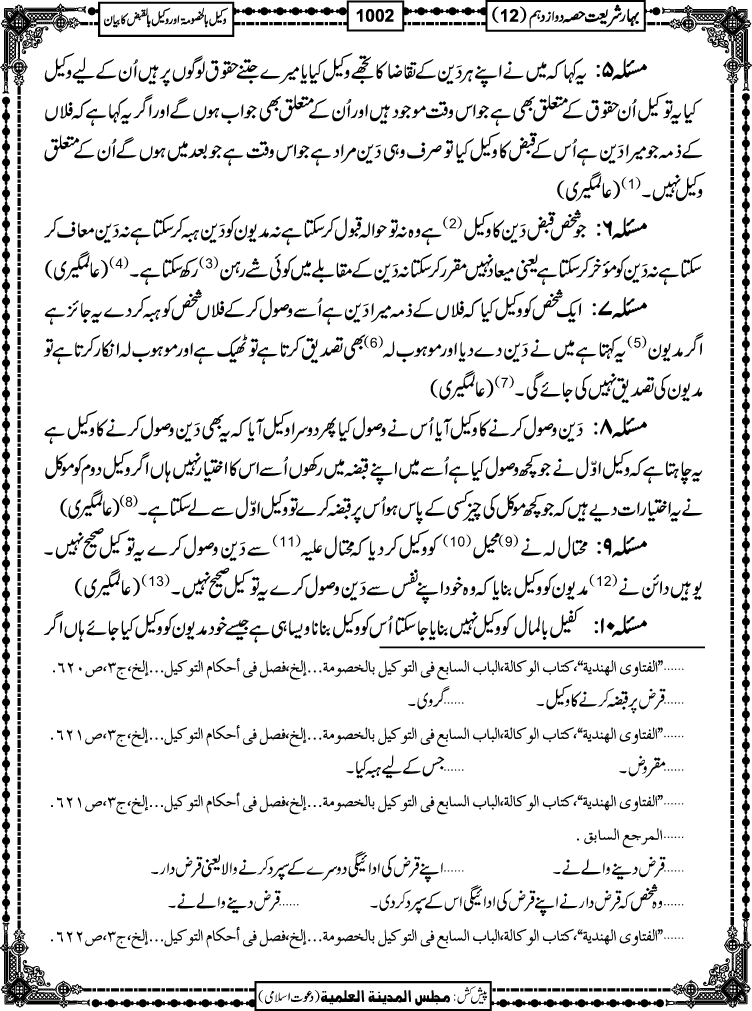 بہارِ شریعت حصہ دوازدہم (12)
1002
وکیل بالخصومۃ اور وکیل بالقبض کا بیان
مسئلہ ۵: یہ کہا کہ میں نے اپنے ہر دَین کے تقاضا کا تجھے وکیل کیا یا میرے جتنے حقوق لوگوں پر ہیں اُن کے لیے وکیل
کیا یہ توکیل اُن حقوق کے متعلق بھی ہے جو اس وقت موجود ہیں اور اُن کے متعلق بھی جو اب ہوں گے اور اگر یہ کہا ہے کہ فلاں
کے ذمہ جو میرا دَین ہے اُس کے قبض کا وکیل کیا تو صرف وہی دَین مراد ہے جو اس وقت ہے جو بعد میں ہوں گے اُن کے متعلق
وکیل نہیں۔(1) (عالمگیری)
مسئلہ ۶: جو شخص قبض دَین کا وکیل (2) ہے وہ نہ تو حوالہ قبول کر سکتا ہے نہ مدیون کو دَین ہبہ کر سکتا ہے نہ دَین معاف کر
سکتا ہے نہ دَین کو مؤخر کر سکتا ہے یعنی میعاد نہیں مقرر کر سکتا نہ دَین کے مقابلے میں کوئی شے رہن (3) رکھ سکتا ہے۔(4) (عالمگیری)
مسئلہ ۷: ایک شخص کو وکیل کیا کہ فلاں کے ذمہ میرا دَین ہے اُسے وصول کر کے فلاں شخص کو ہبہ کر دے یہ جائز ہے
اگر مدیون (5) یہ کہتا ہے میں نے دَین دے دیا اور موہوب لہ (6) بھی تصدیق کرتا ہے تو ٹھیک ہے اور موہوب لہ انکار کرتا ہے تو
مدیون کی تصدیق نہیں کی جائے گی۔(7) (عالمگیری)
مسئلہ ۸: دَین وصول کرنے کا وکیل آیا اُس نے وصول کیا پھر دوسرا وکیل آیا کہ یہ بھی دَین وصول کرنے کا وکیل ہے
یہ چاہتا ہے کہ وکیل اوّل نے جو کچھ وصول کیا ہے اُسے میں اپنے قبضہ میں رکھوں اُسے اس کا اختیار نہیں ہاں اگر وکیل دوم کو موکل
نے یہ اختیارات دیے ہیں کہ جو کچھ موکل کی چیز کسی کے پاس ہو اُس پر قبضہ کرے تو وکیل اوّل سے لے سکتا ہے۔(8) (عالمگیری)
مسئلہ ۹: محتال لہ نے (9) محیل (10) کو وکیل کر دیا کہ محتال علیہ (11) سے دَین وصول کرے یہ توکیل صحیح نہیں۔
یوہیں دائن نے (12) مدیون کو وکیل بنایا کہ وہ خود اپنے نفس سے دَین وصول کرے یہ توکیل صحیح نہیں۔(13) (عالمگیری)
مسئلہ ۱۰: کفیل بالمال کو وکیل نہیں بنایا جا سکتا اُس کو وکیل بنانا ویسا ہی ہے جیسے خود مدیون کو وکیل کیا جائے ہاں اگر
......”الفتاوی الھندیۃ“، کتاب الوکالۃ، الباب السابع فی التوکیل بالخصومۃ...إلخ، فصل فی أحکام التوکیل...إلخ، ج۳، ص۶۲۰.
......قرض پر قبضہ کرنے کا وکیل۔ ......گروی۔
......”الفتاوی الھندیۃ“، کتاب الوکالۃ، الباب السابع فی التوکیل بالخصومۃ...إلخ، فصل فی أحکام التوکیل...إلخ، ج۳، ص۶۲۱.
......مقروض۔ ......جس کے لیے ہبہ کیا۔
......”الفتاوی الھندیۃ“، کتاب الوکالۃ، الباب السابع فی التوکیل بالخصومۃ...إلخ، فصل فی أحکام التوکیل...إلخ، ج۳، ص۶۲۱.
......المرجع السابق.
......قرض دینے والے نے۔ ......اپنے قرض کی ادائیگی دوسرے کے سپرد کرنے والا یعنی قرض دار۔
......وہ شخص کہ قرض دار نے اپنے قرض کی ادائیگی اس کے سپرد کر دی۔ ......قرض دینے والے نے۔
......”الفتاوی الھندیۃ“، کتاب الوکالۃ، الباب السابع فی التوکیل بالخصومۃ...إلخ، فصل فی أحکام التوکیل...إلخ، ج۳، ص۶۲۲.
پیش کش: مجلس المدینۃ العلمیۃ (دعوت اسلامی)